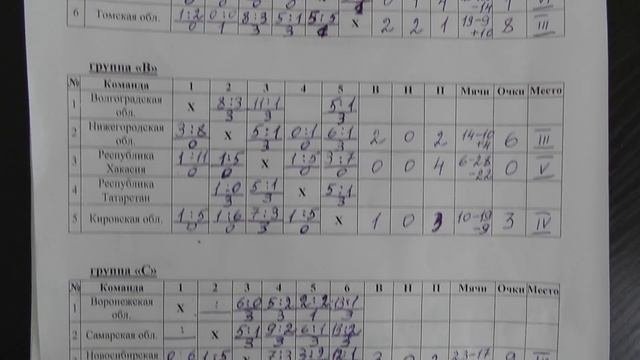 6 Томская обл. 1:2 0:0 8:3 5:1 5:5 X 2 2 1 19-9 8 III
0 1 3 3 +10
группа «В»
№ Команда 1 2 3 4 5 В Н П Мячи Очки Место
1 Волгоградская обл. X 8:3 11:1 5:1
3 3 3
2 Нижегородская обл. 3:8 X 5:1 0:1 6:1 2 0 2 14-10 6 III
0 3 0 3 +4
3 Республика Хакасия 1:11 1:5 X 1:5 3:7 0 0 4 6-28 0 V
0 0 0 0 -22
4 Республика Татарстан 1:0 5:1 X 5:1
3 3 3
5 Кировская обл. 1:5 1:6 7:3 1:5 X 1 0 3 10-19 3 IV
0 0 3 0 -9
группа «С»
№ Команда 1 2 3 4 5 6 В Н П Мячи Очки Место
1 Воронежская обл. X : 6:0 5:2 2:2 13:1
3 3 1 3
2 Самарская обл. : X 5:1 9:2 6:1
3 3 3 3
3 Новосибирская 0:6 1:5 X 7:3